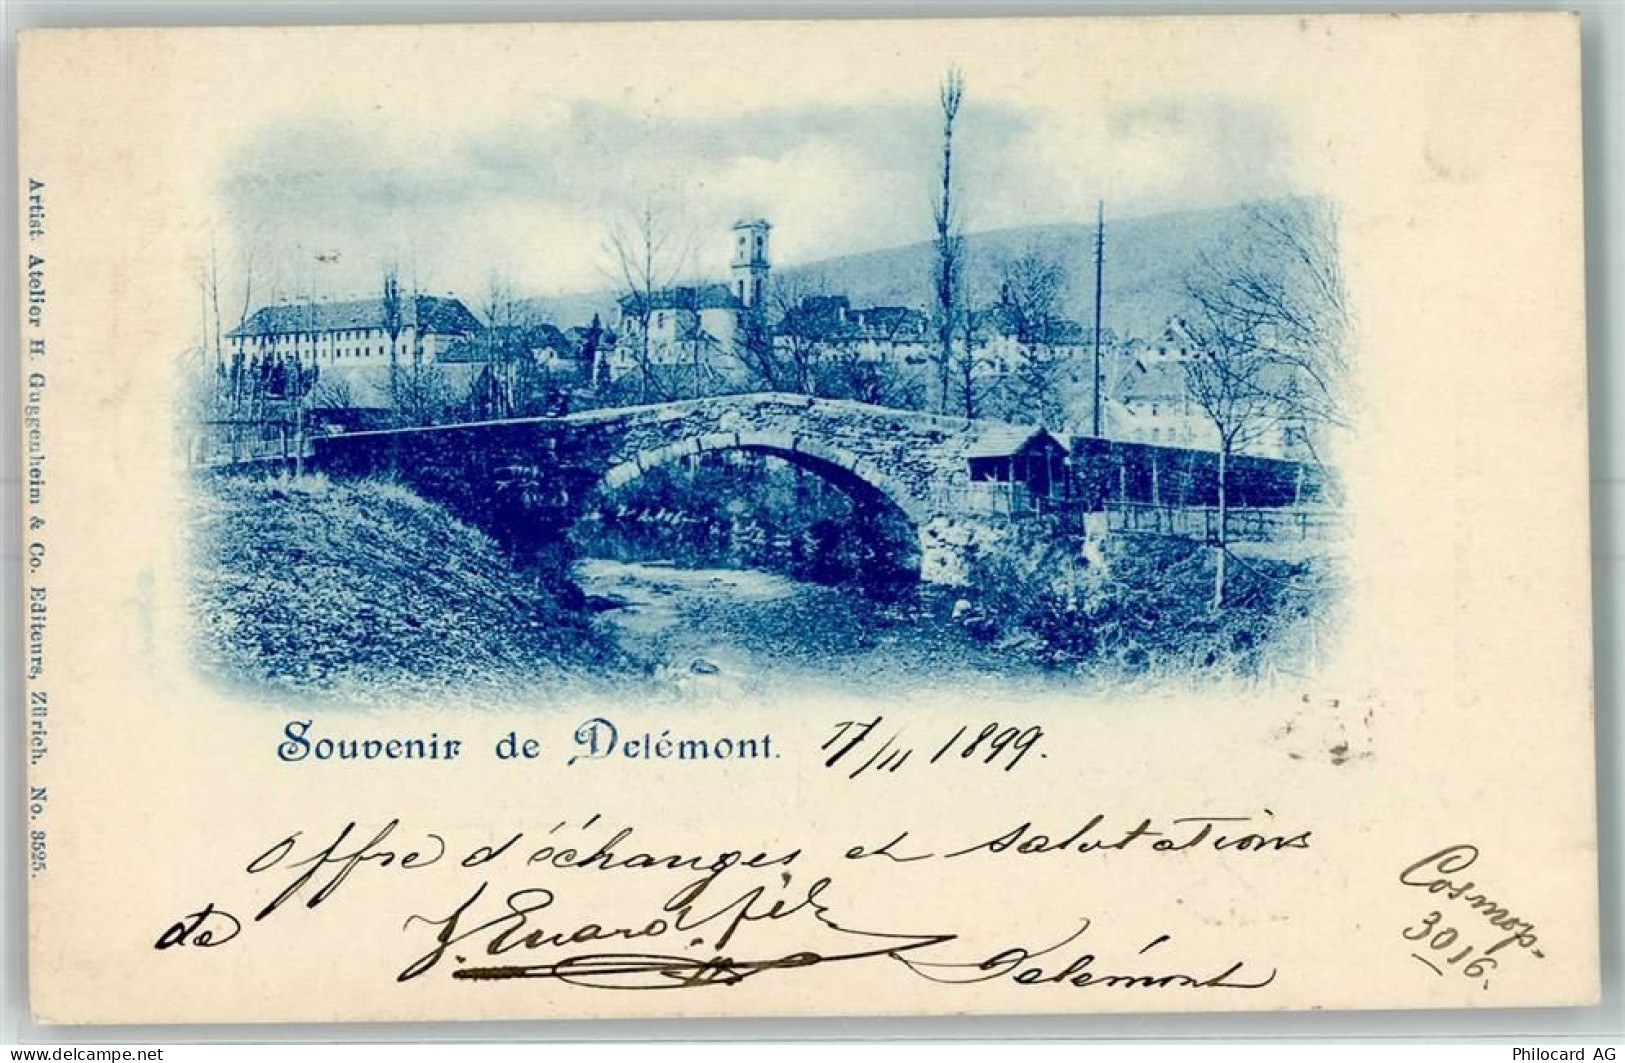 Artist. Atelier H. Guggenheim & Co. Editeurs, Zürich. No. 3525.
Souvenir de Delémont. 17/11 1899.
Offre d'échanges et salutations
de J. Enard fils
Delémont
Cosmop-
3016.
www.delcampe.net
Philocard AG